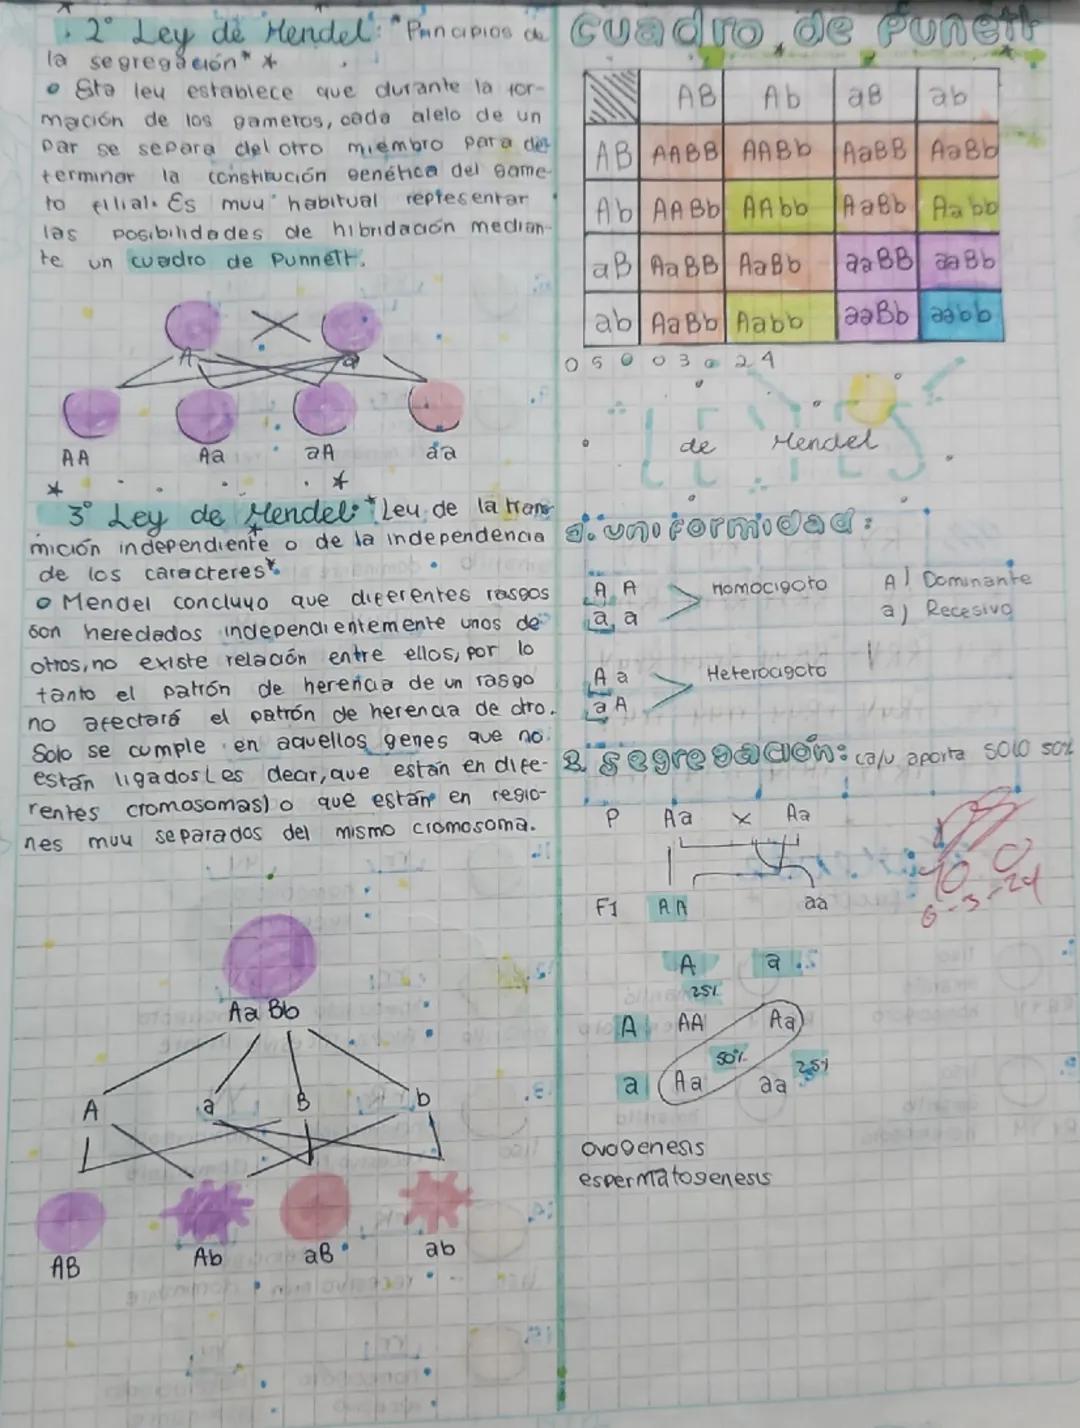 2° Ley de Mendel: "Principios de
la segregación"
Esta ley establece que durante la for-
mación de los gametos, cada alelo de un
par se separa del otro miembro para de
terminar la constitución genética del game-
to filial. Es muy habitual representar
las posibilidades de hibridación median-
te un cuadro de Punnett.
A a
AA Aa aA aa
3° Ley de Mendel: "Ley de la trans
mición independiente o de la independencia
de los caracteres"
Mendel concluyo que diferentes rasgos
son heredados independientemente unos de
otros, no existe relación entre ellos, por lo
tanto el patrón de herencia de un rasgo
no afectará el patrón de herencia de otro.
Solo se cumple en aquellos genes que no
están ligados (es decir, que están en dife-
rentes cromosomas) o que están en regio-
nes muy separados del mismo cromosoma.
Aa Bb
A a B b
AB Ab aB ab
Cuadro de Punett
AB Ab aB ab
AB AABB AABb AaBB AaBb
Ab AABb AAbb AaBb Aabb
aB AaBB AaBb aaBB aaBb
ab AaBb Aabb aaBb aabb
05 03 24
de Mendel
1. uniformidad:
A A
a a
Homocigoto
A) Dominante
a) Recesivo
A a
a A
Heterocigoto
2. segregación: ca/u aporta solo 50%
P Aa x Aa
F1 AA aa
10
6-3-24
A a
25%
A AA Aa
50% 25%
a Aa aa
ovogenesis
espermatogenesis